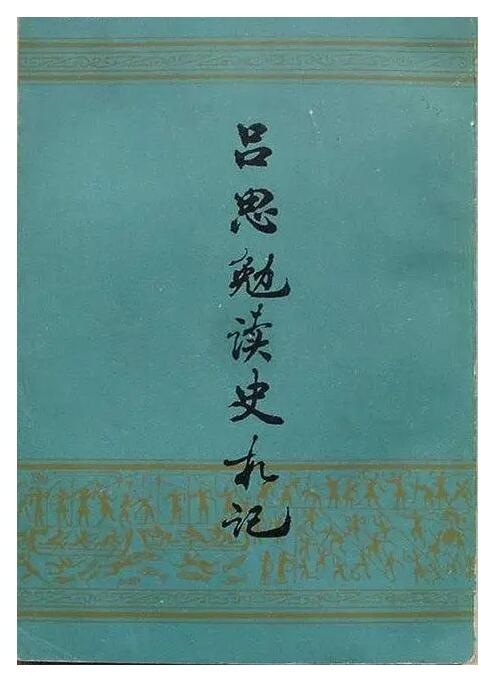 吕思勉读史札记